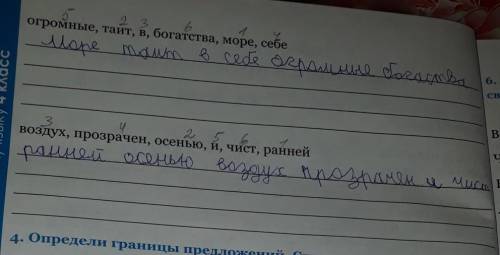 5 2 3 6 1 4
огромные, таит, в, богатства, море, себе
Море таит в себе огромные богатства
языку 4 класс
6.
св
3 4 2 5 6 1
воздух, прозрачен, осенью, и, чист, ранней
ранней осенью воздух прозрачен и чист
В
ч
4. Определи границы предложений.